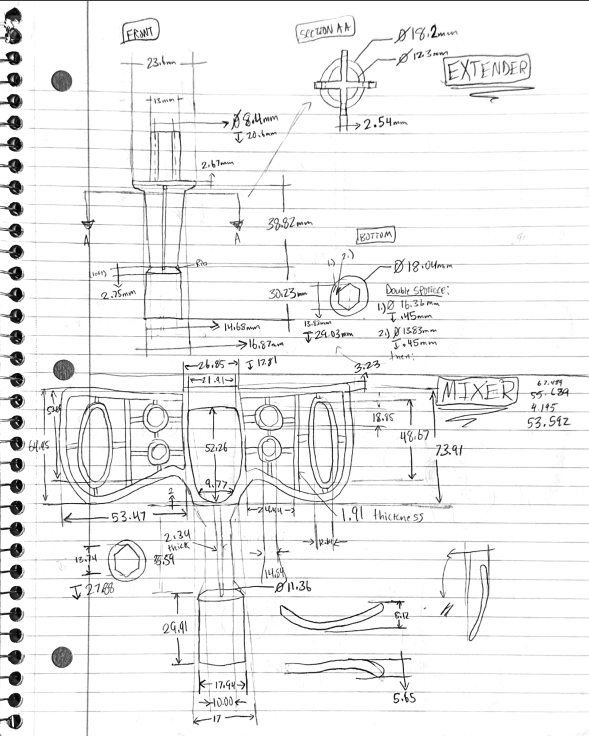 FRONT
SECTION AA
Ø18.2mm
Ø12.3mm
EXTENDER
23.6mm
13mm
Ø8.4mm
↧ 20.6mm
2.54mm
2.67mm
A
A
38.82mm
BOTTOM
1.)
2.)
Ø18.04mm
2.75mm
30.23mm
Double Spotface:
1.) Ø 16.36mm
↧ .45mm
13.83mm
↧ 29.03mm
2.) Ø 13.83mm
↧ .45mm
then:
14.68mm
16.87mm
26.85
↧ 17.81
3.23
21.91
MIXER
55.639
4.195
53.592
18.85
52.26
48.67
73.91
64.45
9.77
2
53.47
24.44
1.91 thickness
2.34
thick
13.74
35.59
↧ 27.88
14.84
Ø11.36
29.91
8.12
17.94
10.00
17
5.65